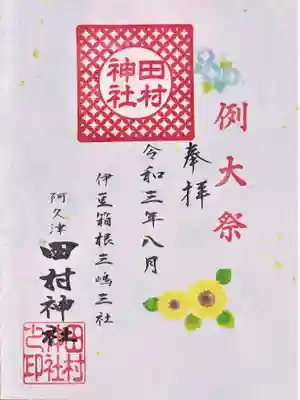 例大祭
奉拝
令和三年八月
田村神社
伊豆箱根三嶋三社
阿久津
田村神社
田村神社之印